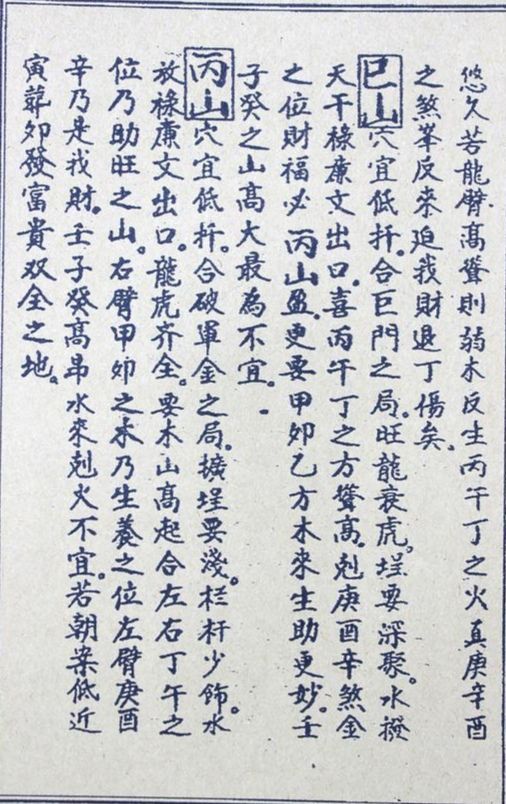 悠久若龍臂高聳則弱木反生丙午丁之火真庚辛酉
之煞峯反来迫我財退丁傷矣、
巳山穴宜低扦。合巨門之局。旺龍衰虎。埕要深聚。水撥
天干祿廉文出口。喜丙午丁之方聳高。剋庚酉辛煞金
之位財福必丙山盈、更要甲卯乙方木來生助更妙。壬
子癸之山高大最為不宜。
丙山穴宜低扦。合破軍金之局。擴埕要淺。栏杆少飾。水
放祿廉文出口。龍虎齐全。要木山高起合左右丁午之
位乃助旺之山。右臂甲卯之木乃生養之位左臂庚酉
辛乃是我財。壬子癸高昂水來剋火不宜。若朝案低近
寅葬卯發富貴双全之地。